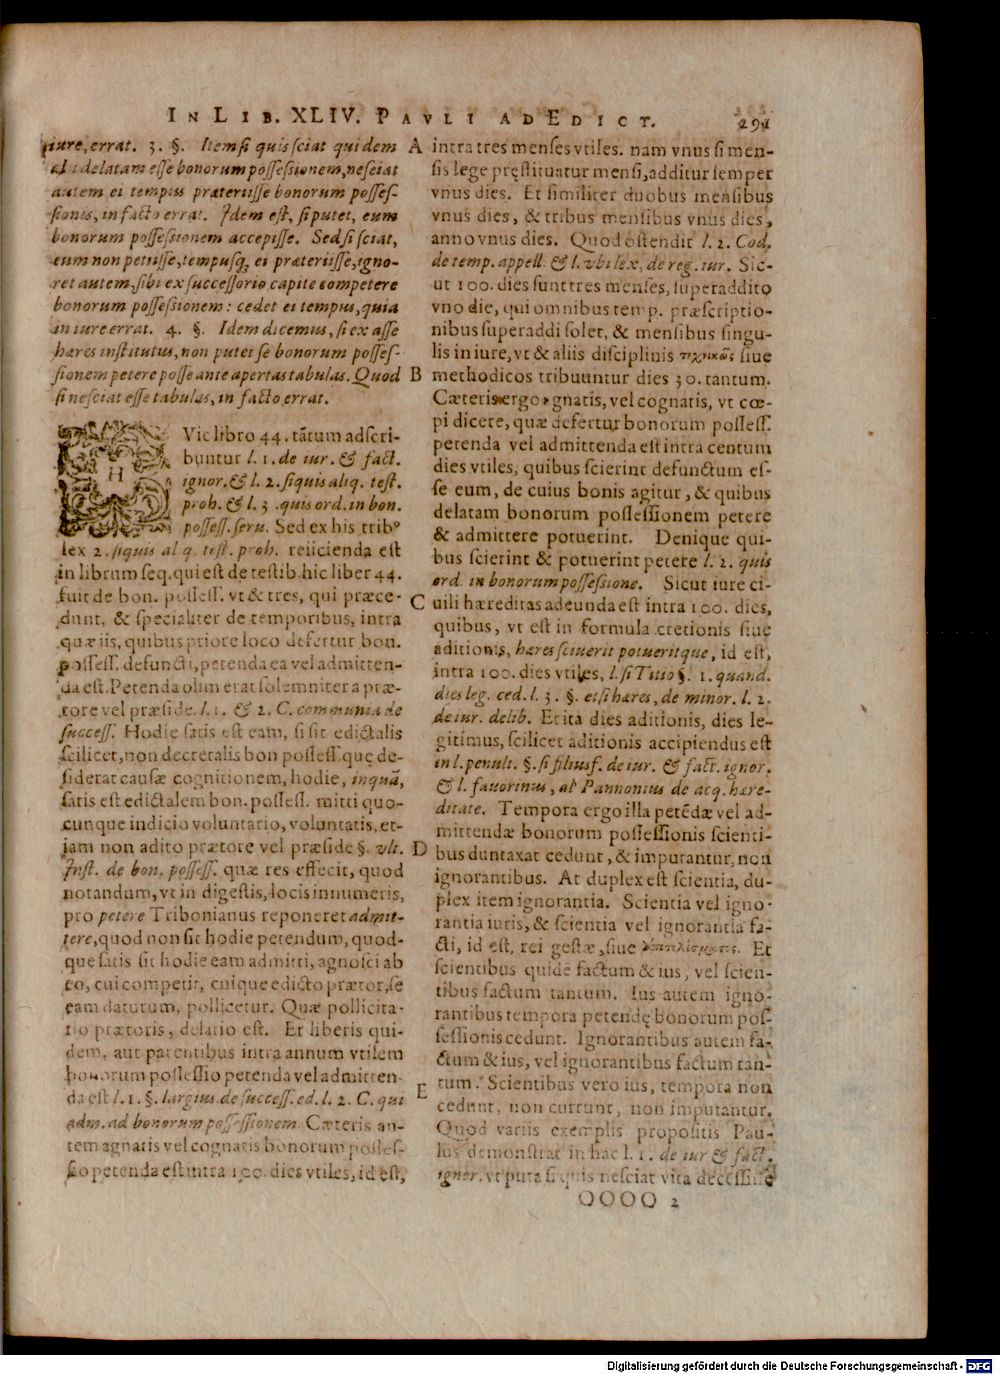 IN LIB. XLIV. PAVLI AD EDICT. 291
iure, errat. 3. §. Item si quis sciat quidem
delatam esse bonorum possessionem, nesciat
autem ei tempus præteriisse bonorum posses-
sionis, in facto errat. Idem est, si putet, eum
bonorum possessionem accepisse. Sed si sciat,
eum non petiisse, tempusq; ei præteriisse, igno-
ret autem, sibi ex successorio capite competere
bonorum possessionem: cedet ei tempus, quia
in iure errat. 4. §. Idem dicemus, si ex asse
hæres institutus, non putet se bonorum posses-
sionem petere posse ante apertas tabulas. Quod
si nesciat esse tabulas, in facto errat.
HVic libro 44. tãtum adscri-
buntur l. 1. de iur. & fact.
ignor. & l. 2. si quis aliq. test.
proh. & l. 3. quis ord. in bon.
possess. seru. Sed ex his trib⁹
lex 2. si quis al q. test. proh. reiicienda est
in librum seq. qui est de testib. hic liber 44.
fuit de bon. possess. vt & tres, qui præce-
dunt, & specialiter de temporibus, intra
quæ iis, quibus priore loco defertur bon.
possess. defuncti, petenda ea vel admitten-
da est. Petenda olim erat solemniter a præ-
tore vel præside. l. 1. & 2. C. communia de
success. Hodie satis est eam, si sit edictalis
scilicet, non decretalis bon possess. quę de-
siderat causæ cognitionem, hodie, inquã,
satis est edictalem bon. possess. mitti quo-
cunque indicio voluntario, voluntatis, et-
iam non adito prætore vel præside §. vlt.
Inst. de bon. possess. quæ res effecit, quod
notandum, vt in digestis, locis innumeris,
pro petere Tribonianus reponeret admit-
tere, quod non sit hodie petendum, quod-
que satis sit hodie eam admitti, agnosci ab
eo, cui competit, cuique edicto prætor, se
eam daturum, pollicetur. Quæ pollicita-
tio prætoris, delatio est. Et liberis qui-
dem, aut parentibus intra annum vtilem
bonorum possessio petenda vel admitten-
da est l. 1. §. largius. de success. ed. l. 2. C. qui
adm. ad bonorum possessionem. Cæteris au-
tem agnatis vel cognatis bonorum posses-
sio petenda est intra 100. dies vtiles, id est,
A
B
C
D
E
intra tres menses vtiles. nam vnus si men-
sis lege pręstituatur mensi, additur semper
vnus dies. Et similiter duobus mensibus
vnus dies, & tribus mensibus vnus dies,
anno vnus dies. Quod ostendit l. 2. Cod.
de temp. appell. & l. vbi lex, de reg. iur. Sic-
ut 100. dies sunt tres menses, superaddito
vno die, qui omnibus temp. præscriptio-
nibus superaddi solet, & mensibus singu-
lis in iure, vt & aliis disciplinis siue
methodicos tribuuntur dies 30. tantum.
Cæteris ergo agnatis, vel cognatis, vt cœ-
pi dicere, quæ defertur bonorum possess.
petenda vel admittenda est intra centum
dies vtiles, quibus scierint defunctum es-
se eum, de cuius bonis agitur, & quibus
delatam bonorum possessionem petere
& admittere potuerint. Denique qui-
bus scierint & potuerint petere l. 2. quis
ord. in bonorum possessione. Sicut iure ci-
uili hæreditas adeunda est intra 100. dies,
quibus, vt est in formula cretionis siue
aditionis, hæres sciuerit potueritque, id est,
intra 100. dies vtiles, l. si Titio §. 1. quand.
dies leg. ced. l. 3. §. etsi hæres, de minor. l. 2.
de iur. delib. Et ita dies aditionis, dies le-
gitimus, scilicet aditionis accipiendus est
in l. penult. §. si filiusf. de iur. & fact. ignor.
& l. fauorinus, al Pannonius de acq. hære-
ditate. Tempora ergo illa petẽdæ vel ad-
mittendæ bonorum possessionis scienti-
bus duntaxat cedunt, & imputantur, non
ignorantibus. At duplex est scientia, du-
plex item ignorantia. Scientia vel igno-
rantia iuris, & scientia vel ignorantia fa-
cti, id est, rei gestæ, siue Et
scientibus quidẽ factum & ius, vel scien-
tibus factum tantum. Ius autem igno-
rantibus tempora petendę bonorum pos-
sessionis cedunt. Ignorantibus autem fa-
ctum & ius, vel ignorantibus factum tan-
tum. Scientibus vero ius, tempora non
cedunt, non currunt, non imputantur.
Quod variis exemplis propositis Pau-
lus demonstrat in hac l. 1. de iur & fact.
ignor. vt puta si quis nesciat vita decessisse
QQQQ 2
Digitalisierung gefördert durch die Deutsche Forschungsgemeinschaft - DFG